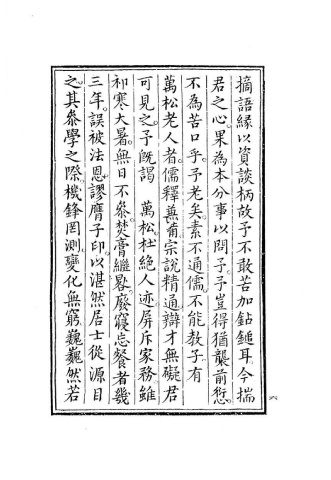 摘語緣以資談柄故予不敢苦加鈷鎚耳今揣
君之心果為本分事以問予予豈得猶襲前愆
不為苦口乎予老矣素不通儒不能教子有
萬松老人者儒釋兼備宗說精通辯才無礙君
可見之予既謁 萬松杜絕人迹屏斥家務雖
祁寒大暑無日不叅焚膏繼晷廢寢忘餐者幾
三年誤被法恩謬膺子印以湛然居士從源目
之其叅學之際機鋒罔測變化無窮巍巍然若
六